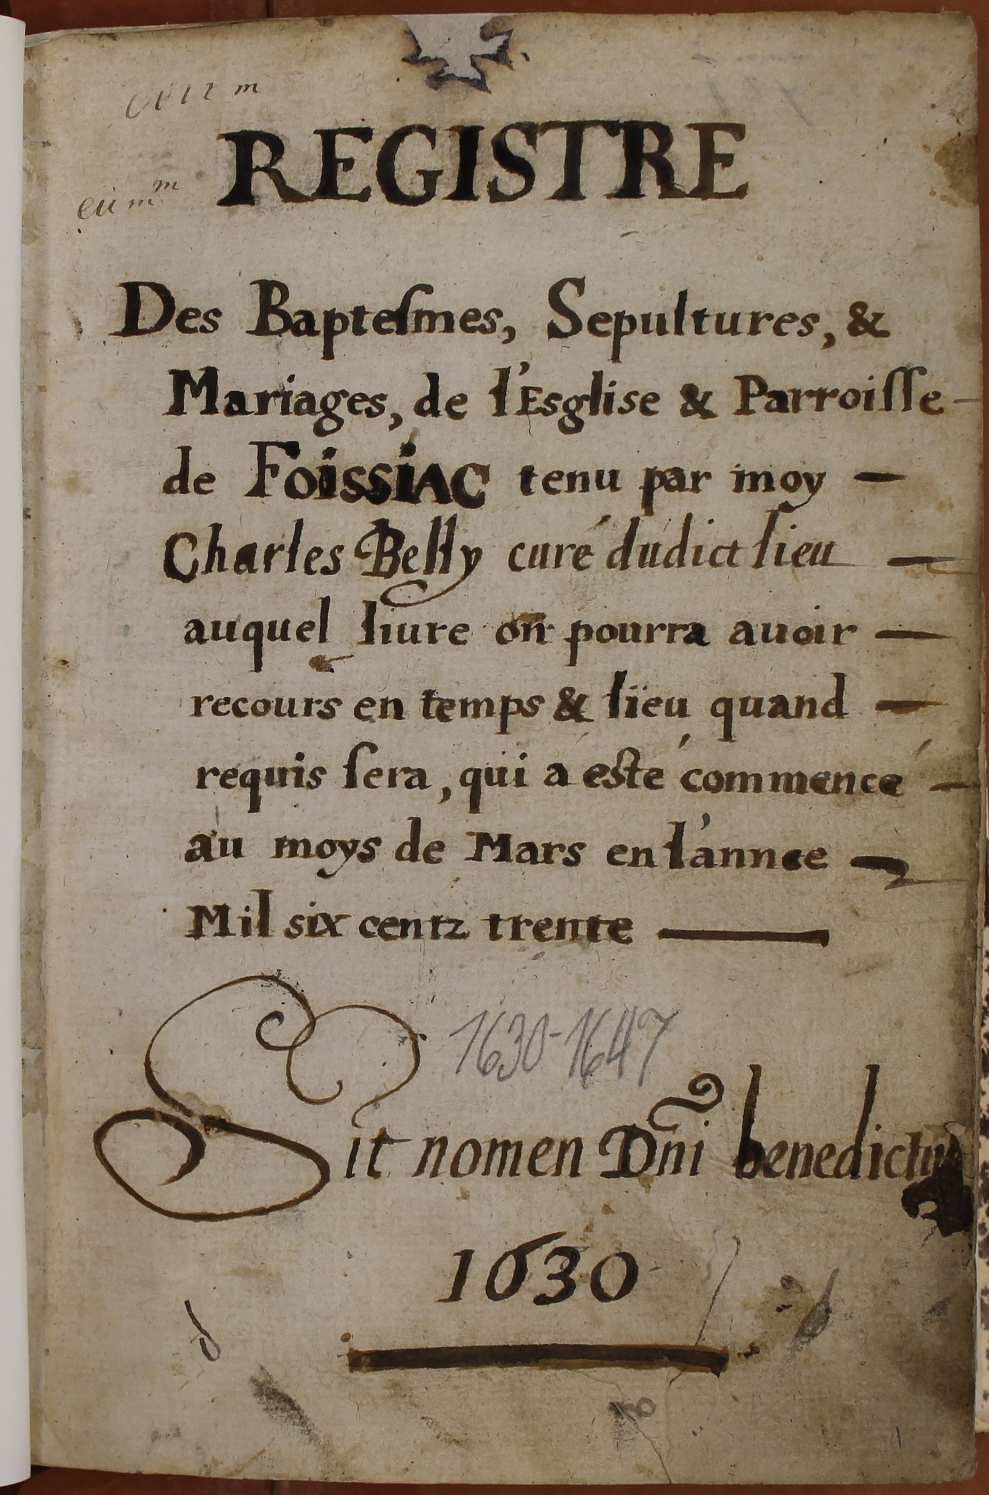 REGISTRE
Des Bapteſmes, Sepultures, &
Mariages, de l'Esglise & Parroiſſe
de FOISSIAC tenu par moy
Charles Belly curé dudict lieu
auquel liure on pourra auoir
recours en temps & lieu quand
requis ſera, qui a esté commencé
au moys de Mars en l'annee
Mil six centz trente
1630-1647
Sit nomen Dñi benedictu
1630